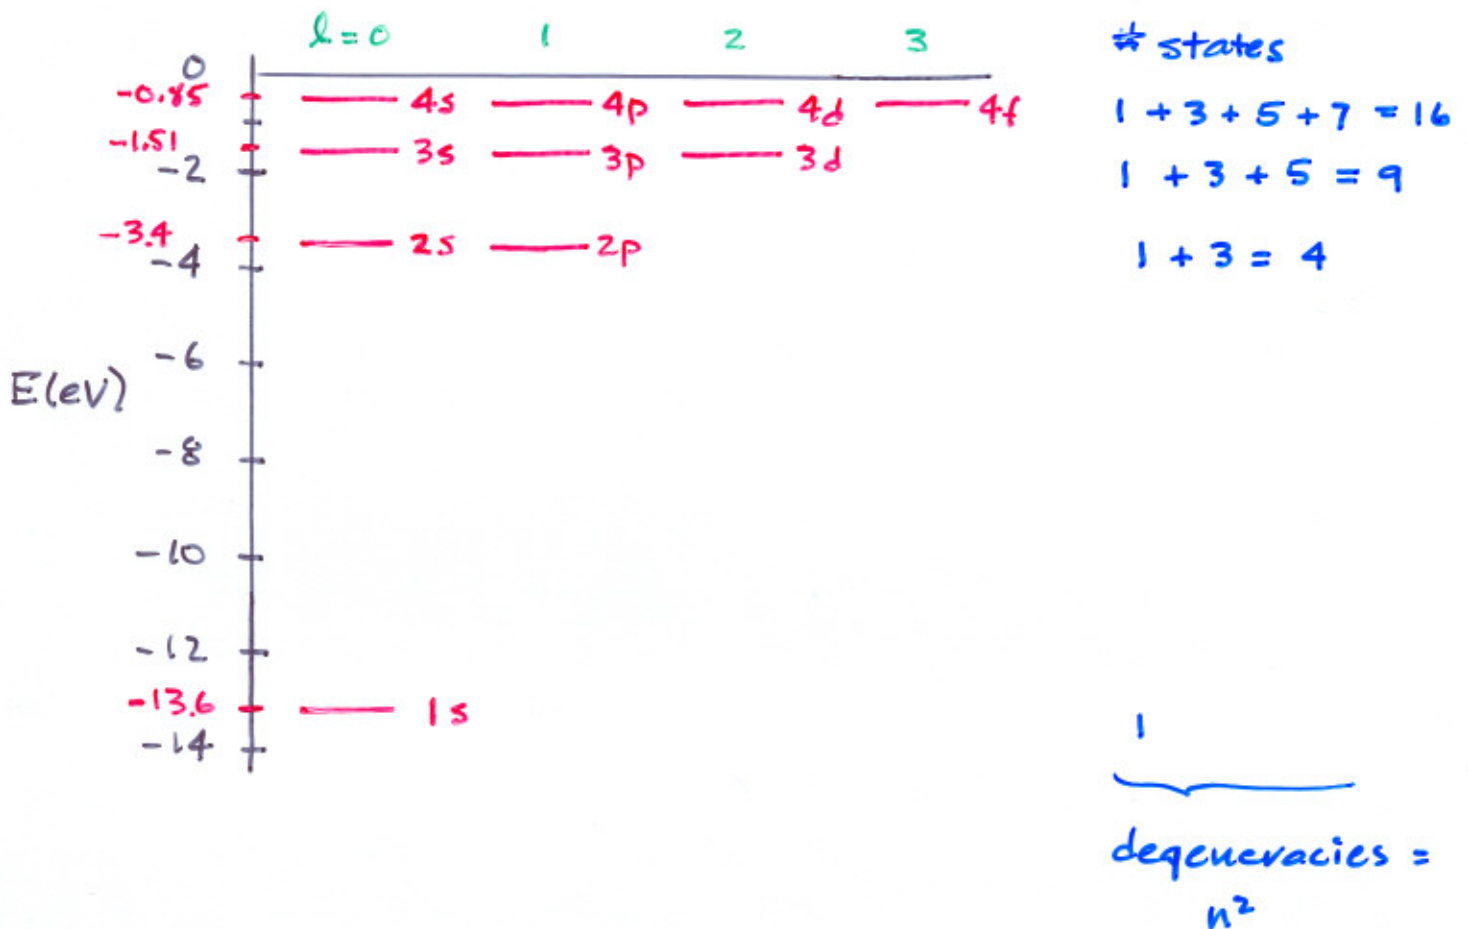 l = 0 1 2 3 # states
0
-0.85 4s 4p 4d 4f 1 + 3 + 5 + 7 = 16
-1.51 3s 3p 3d 1 + 3 + 5 = 9
-2
-3.4 2s 2p 1 + 3 = 4
-4
-6
E(eV)
-8
-10
-12
-13.6 1s 1
-14
degeneracies =
n²